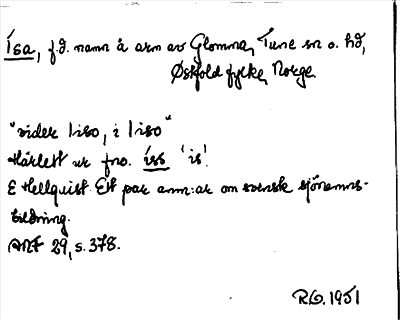 Ísa, f.d. namn å arm av Glomma, Tune sn o. hd,
Østfold fylke, Norge
"vider Iiso, i Iiso"
Härlett ur fno. íss 'is'.
E Hellquist. Ett par anm:ar om svensk sjönamns-
bildning.
ANF 29, s. 378.
R.G. 1951